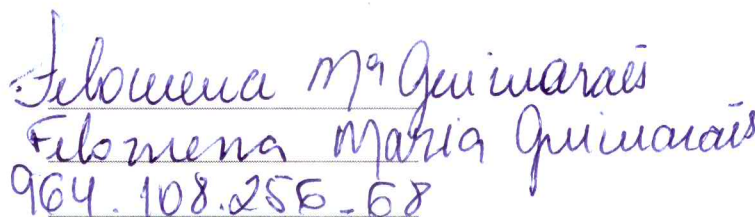 Felomena Mª Guimarães
Felomena Maria Guimarães
964.108.256-68